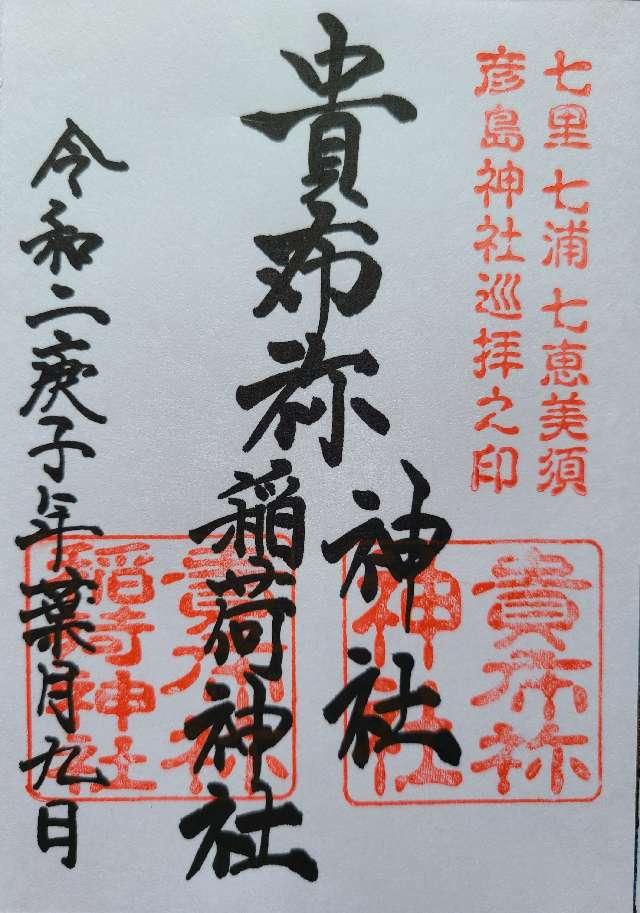 七里七浦七恵美須
彦島神社巡拝之印
貴布祢
神社
稲荷神社
貴布祢
神社
貴布祢
稲荷神社
令和二庚子年葉月九日